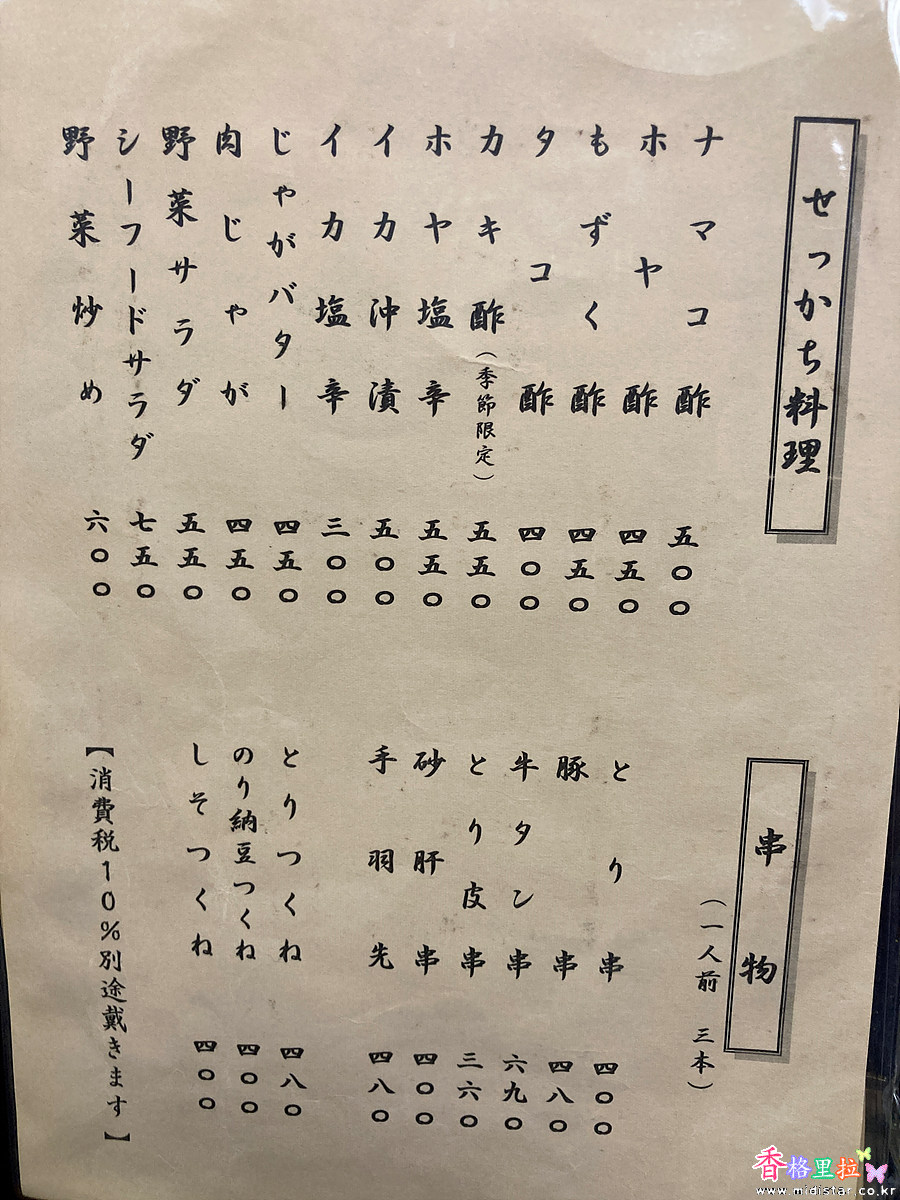 せっかち料理
ナマコ酢 五〇〇
ホヤ酢 四五〇
もずく酢 四五〇
タコ酢 四〇〇
カキ酢(季節限定) 五五〇
ホヤ塩辛 五五〇
イカ沖漬 五〇〇
イカ塩辛 三〇〇
じゃがバター 四五〇
肉じゃが 四五〇
野菜サラダ 五五〇
シーフードサラダ 七五〇
野菜炒め 六〇〇
串物
(一人前 三本)
とり串 四〇〇
豚串 四八〇
牛タン串 六九〇
とり皮串 三六〇
砂肝串 四〇〇
手羽先 四八〇
とりつくね 四八〇
のり納豆つくね 四〇〇
しそつくね 四〇〇
【消費税10%別途戴きます】
香格里拉
www.midistar.co.kr